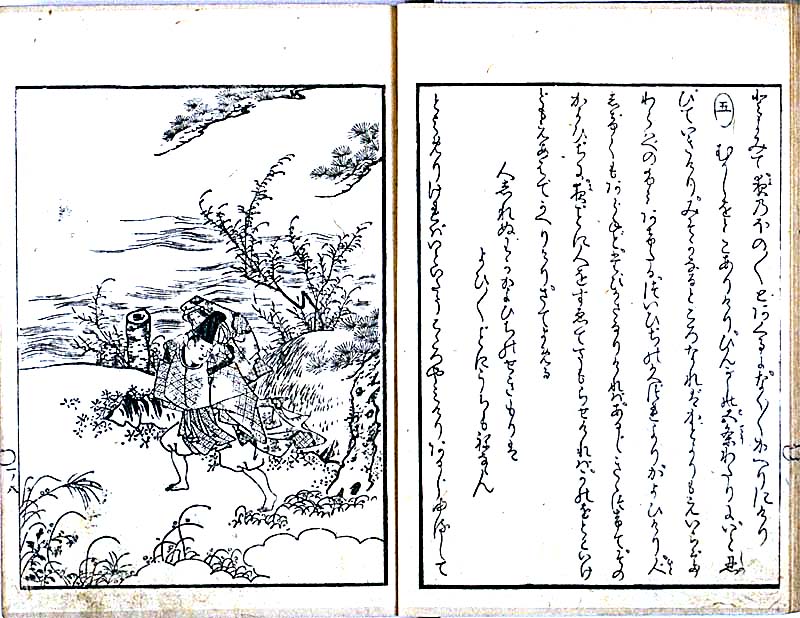 とよみて夜のほの〱とあくるになく〱かへりにけり
五 むかしをとこありけりひんかしの五条わたりにいと忍
びていきけりみそかなるところなればかどよりもえいらで
わらべのふみあけたるついひぢのくづれよりかよひけり人
しげくもあらねどたびかさなりければあるじきゝつけてその
かよひぢに夜ごとに人をすゑてまもらせければかのをとこいけ
どもえあはでかへりけりさてよめる
人しれぬわがかよひぢのせきもりは
よひ〱ごとにうちもねなゝん
とよめりければいといたうこゝろやみけりあるじゆるして